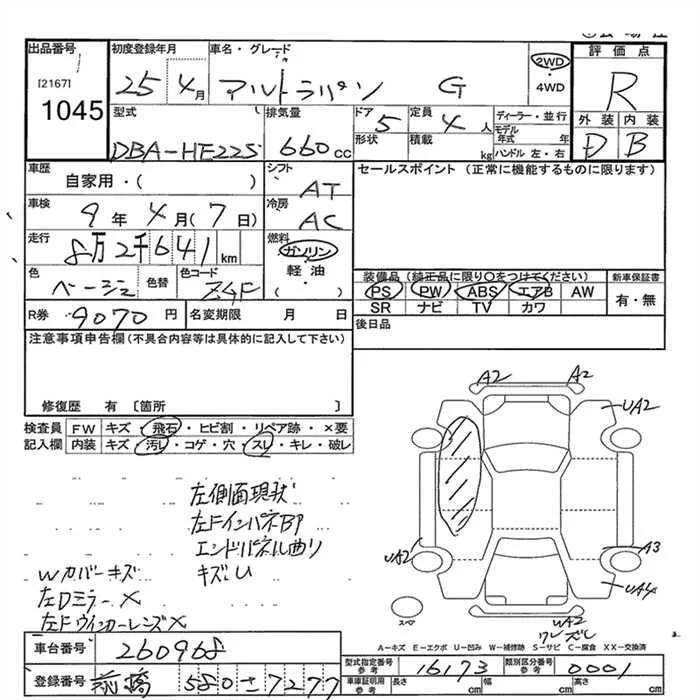 出品番号 初度登録年月 車名・グレード 2WD 評価点
[2167] 25 4月 アルトラパン G 4WD R
1045 型式 排気量 ドア 定員 ディーラー・並行 外装 内装
DBA-HE22S 660cc 5 4人 モデル年式 年 D B
形状 積載 kg ハンドル 左・右
車歴 シフト セールスポイント (正常に機能するものに限ります)
自家用・( ) AT
車検 冷房
9年4月(7日) AC
走行 燃料
8万2千641km ガソリン
色 色替 色コード 軽油 装備品 (純正品に限り○をつけてください) 新車保証書
ベージュ Z4F ( ) PS PW ABS エアB AW 有・無
SR ナビ TV カワ
R券 9070円 名変期限 月 日 後日品
注意事項申告欄 (不具合内容等は具体的に記入して下さい)
修復歴 有 〔箇所 〕
検査員 FW キズ・飛石・ヒビ割・リペア跡・×要
記入欄 内装 キズ・汚レ・コゲ・穴・スレ・キレ・破レ
A2 A2
UA2
左側面現状
左FインパネBP
エンドパネル曲り
キズU
Wカバーキズ
左Dミラー×
左Fウインカーレンズ×
UA2 A3
UA4
スペア UA2
ワレズレ
A-キズ E-エクボ U-凹み W-補修跡 S-サビ C-腐食 XX-交換済
車台番号 260968 型式指定番号 参考 16173 類別区分番号 参考 0001
登録番号 前橋 580 土 7277 車庫証明用 参考 長さ cm 幅 cm 高さ cm